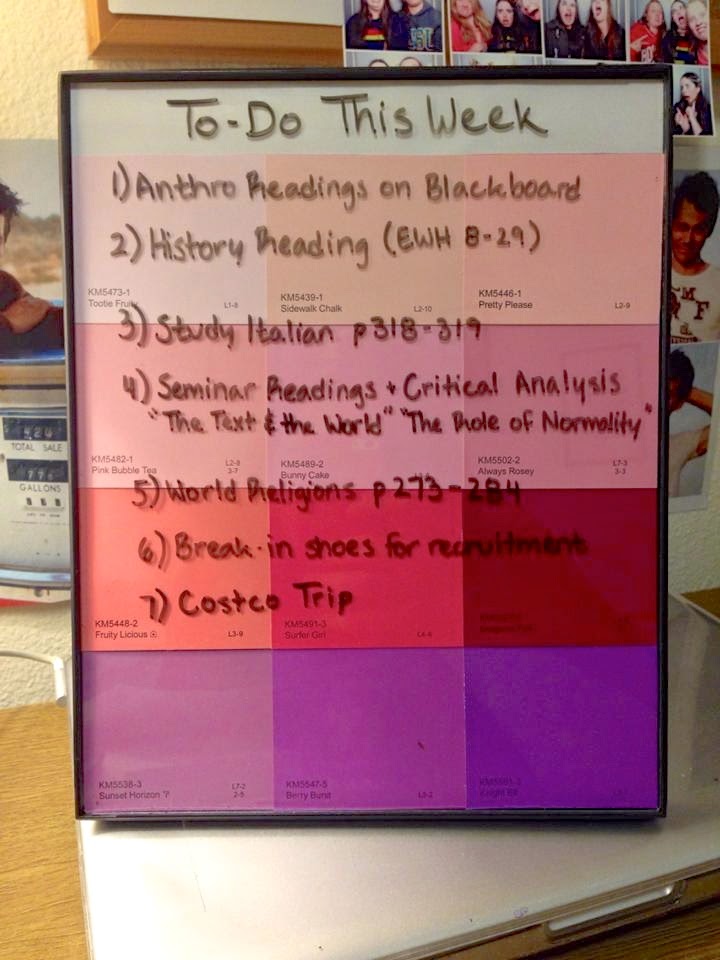 To-Do This Week
1) Anthro Readings on Blackboard
2) History Reading (EWH 8-29)
KM5473-1 KM5439-1 KM5446-1
Tootie Fruity L1-8 Sidewalk Chalk L2-10 Pretty Please L2-9
3) Study Italian p318-319
4) Seminar Readings + Critical Analysis
"The Text & the World" "The Role of Normality"
KM5482-1 L2-8 KM5489-2 KM5502-2 L7-3
Pink Bubble Tea 3-7 Bunny Cake Always Rosey 3-3
TOTAL SALE
GALLONS
5) World Religions p273-284
6) Break-in shoes for recruitment
7) Costco Trip
KM5448-2 KM5491-3
Fruity Licious L3-9 Surfer Girl L4-6
KM5538-3 L7-2 KM5547-5
Sunset Horizon 2-5 Berry Burst Knight Elf